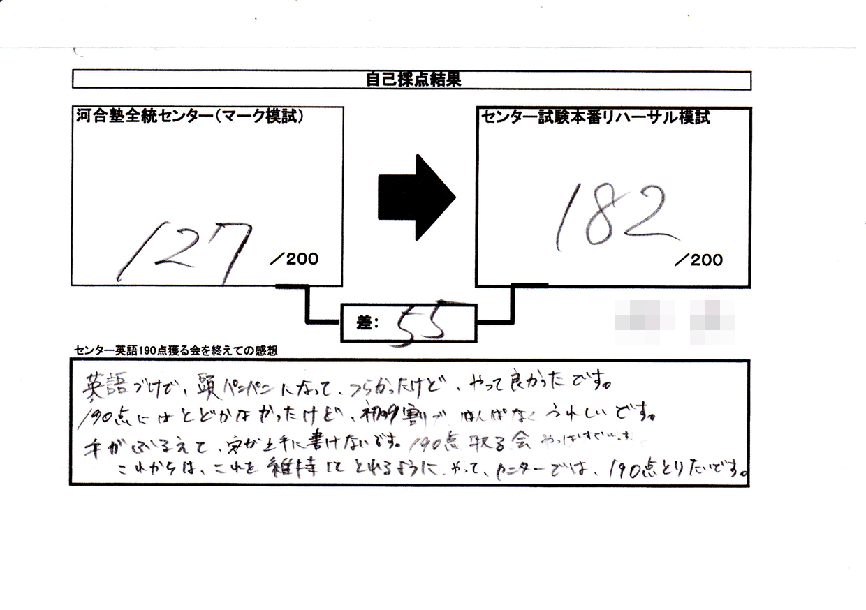 自己採点結果
河合塾全統センター(マーク模試)
127 /200
センター試験本番リハーサル模試
182 /200
差: 55
センター英語190点獲る会を終えての感想
英語づけで、頭パンパンになって、つらかったけど、やって良かったです。
190点にはとどかなかったけど、初の9割ではんぱなくうれしいです。
手がふるえて、字が上手に書けないです。190点取る会
これからは、これを維持してとれるように、やって、センターでは、190点とりたいです。